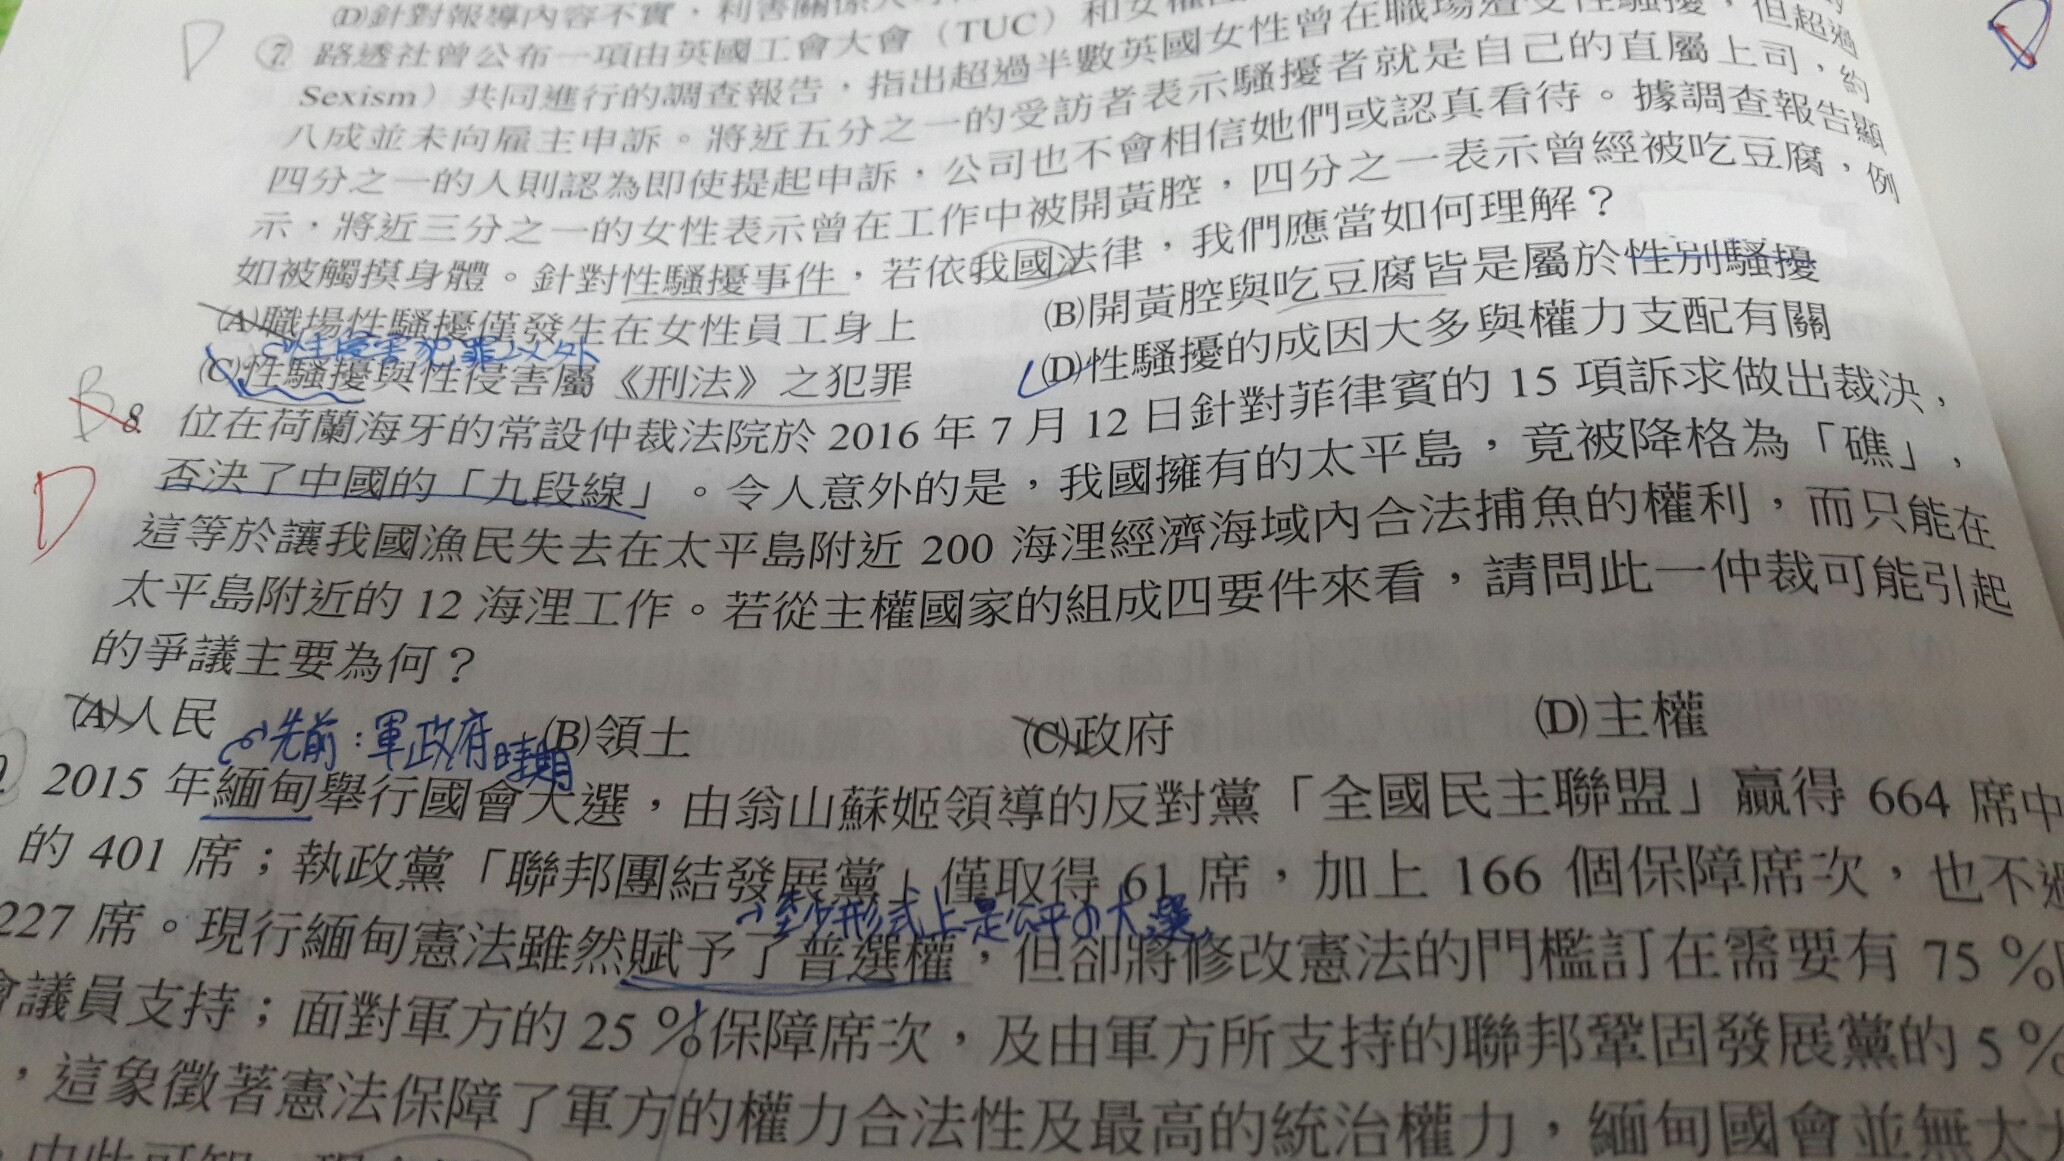 (D)針對報導內容不實，利害關係人
D
⑦ 路透社曾公布一項由英國工會大會（TUC）和女權
Sexism）共同進行的調查報告，指出超過半數英國女性曾在職場遭受性騷擾，但超過
八成並未向雇主申訴。將近五分之一的受訪者表示騷擾者就是自己的直屬上司，約
四分之一的人則認為即使提起申訴，公司也不會相信她們或認真看待。據調查報告顯
示，將近三分之一的女性表示曾在工作中被開黃腔，四分之一表示曾經被吃豆腐，例
如被觸摸身體。針對性騷擾事件，若依我國法律，我們應當如何理解？
(A)職場性騷擾僅發生在女性員工身上 (B)開黃腔與吃豆腐皆是屬於性別騷擾
性侵害犯罪以外
(C)性騷擾與性侵害屬《刑法》之犯罪 (D)性騷擾的成因大多與權力支配有關
B
8. 位在荷蘭海牙的常設仲裁法院於 2016 年 7 月 12 日針對菲律賓的 15 項訴求做出裁決，
D
否決了中國的「九段線」。令人意外的是，我國擁有的太平島，竟被降格為「礁」，
這等於讓我國漁民失去在太平島附近 200 海浬經濟海域內合法捕魚的權利，而只能在
太平島附近的 12 海浬工作。若從主權國家的組成四要件來看，請問此一仲裁可能引起
的爭議主要為何？
(A)人民 (B)領土 (C)政府 (D)主權
先前：軍政府時期
2015 年緬甸舉行國會大選，由翁山蘇姬領導的反對黨「全國民主聯盟」贏得 664 席中
的 401 席；執政黨「聯邦團結發展黨」僅取得 61 席，加上 166 個保障席次，也不過
至少形式上是公平の大選
227 席。現行緬甸憲法雖然賦予了普選權，但卻將修改憲法的門檻訂在需要有 75 %
會議員支持；面對軍方的 25 %保障席次，及由軍方所支持的聯邦鞏固發展黨的 5 %
，這象徵著憲法保障了軍方的權力合法性及最高的統治權力，緬甸國會並無太大